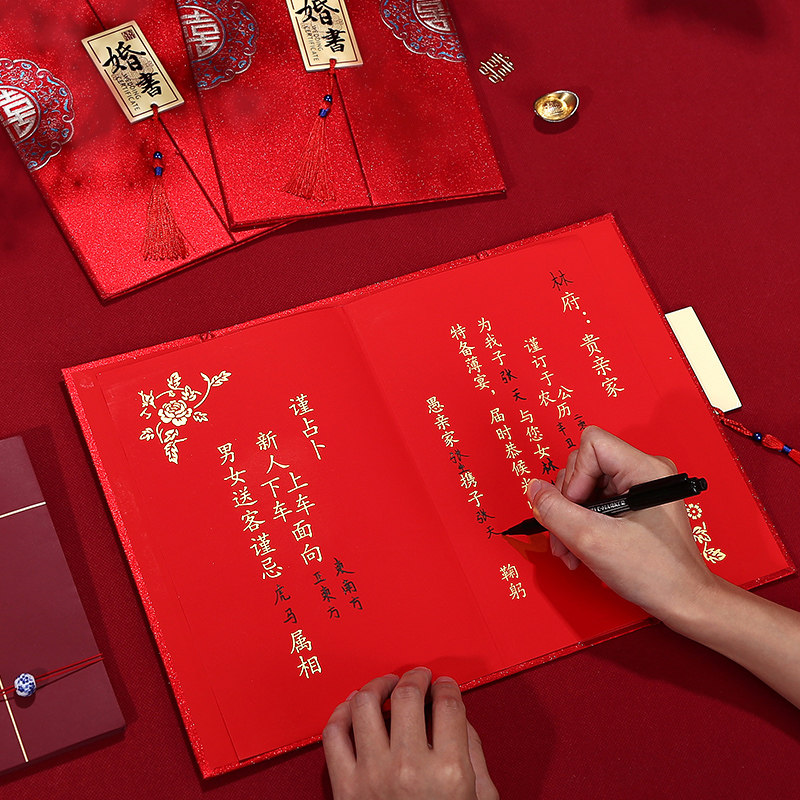 婚書
WEDDING CERTIFICATE
婚書
囍
囍
林府：贵亲家
谨订于农 公历 辛丑 二零
为我子 张天 与您女 林
特备薄宴，届时恭候光
愚亲家 张 携子 张天 鞠躬
谨占卜
上车面向 东南方
新人下车 正东方
男女送客谨忌 虎马 属相